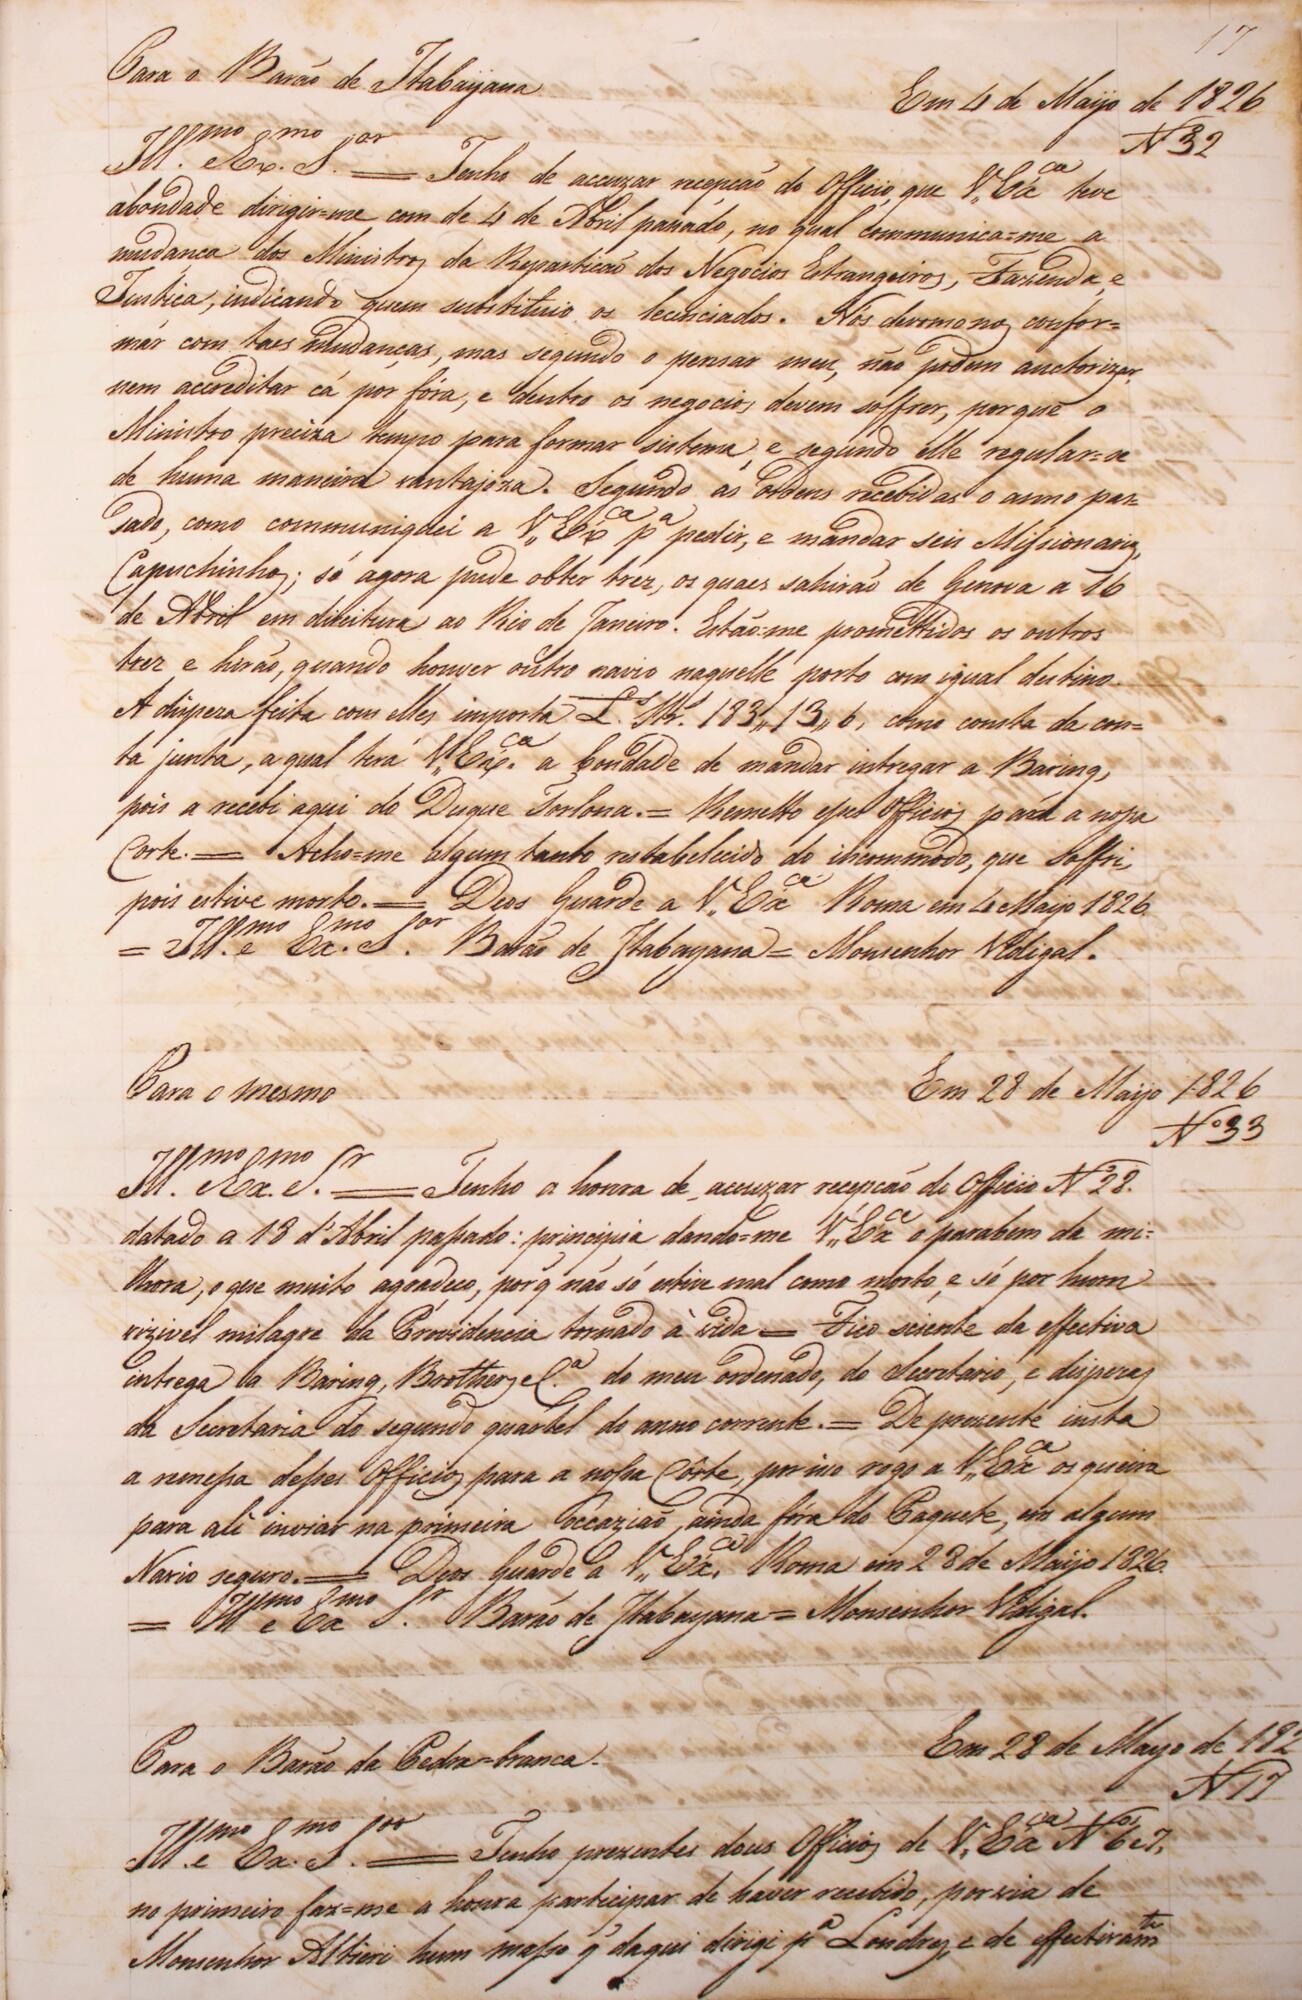 17
Para o Barão de Itabayana
Em 4 de Mayo de 1826
Nº 32
Ill.mo e Ex.mo S.or = Tenho de accuzar recepção do Officio, que V.Exca teve
abondade dirigir=me com de 4 de Abril passado, no qual communica=me a
mudança dos Ministros da Repartição dos Negocios Estrangeiros, Fazenda, e
Justiça, indicando quem substituio os licenciados. Nós devemonos confor=
már com taes mudanças, mas segundo o pensar meu, não podem auctorizar,
nem accreditar cá por fóra, e dentro os negocios devem soffrer, porque o
Ministro preciza tempo para formar sistema, e segundo elle regular=se
de huma maneira vantajoza. Segundo ás ordens recebidas o anno pas=
sado, como communiquei a V.Exca pa pedir, e mandar seis Missionarios
Capuchinhos; só agora pude obter trez, os quaes sahirão de Genova a 16
de Abril em direitura ao Rio de Janeiro. Estão=me promettidos os outros
trez e hirão, quando houver outro navio naquelle porto com igual destino.
A dispeza feita com elles importa L.s St.s 183,,13,,6, como consta da con=
ta junta, a qual terá V.Exca a bondade de mandar intregar a Baring,
pois a recebi aqui do Duque Torlona. = Remetto esses Officios pára a nossa
Corte. = Acho=me algum tanto restabelecido do incommodo, que soffri,
pois estive morto. = Deos Guarde a V.Exca Roma em 4 Mayo 1826
= Ill.mo e Ex.mo S.or Barão de Itabayana = Monsenhor Vidigal.
Para o mesmo
Em 28 de Mayo 1826
Nº 33
Ill.mo e Ex.mo S.r = Tenho a honra de accuzar recepção do Officio Nº 28.
datado a 18 d'Abril passado: principia dando=me V.Exca o parabem da mi=
lhora, o que muito agradeco, porq̃ não só estive mal como morto, e só por hum
vizivel milagre da Providencia tornado à vida = Fico sciente da effectiva
intrega a Baring, Brothers e C.a do meu ordenado, do Secretario, e dispezas
da Secretaria do segundo quartel do anno corrente. = De prezente insta
a remessa desses Officios para a nossa Côrte, por isso rogo a V.Exca os queira
para ali inviar na primeira occazião, ainda fóra do Paquete, em algum
Navio seguro. = Deos Guarde a V.Exca. Roma em 28 de Mayo 1826
= Ill.mo e Ex.mo S.r Barão de Itabayana = Monsenhor Vidigal.
Para o Barão da Pedra=branca.
Em 28 de Mayo de 182
Nº 17
Ill.mo e Ex.mo S.or = Tenho prezentes dous Officios de V.Exca Nos 6 e 7,
no primeiro faz=me a honra participar de haver recebido, por via de
Monsenhor Altieri hum masso q̃ daqui dirigi pa Londres, e de effectivam.te